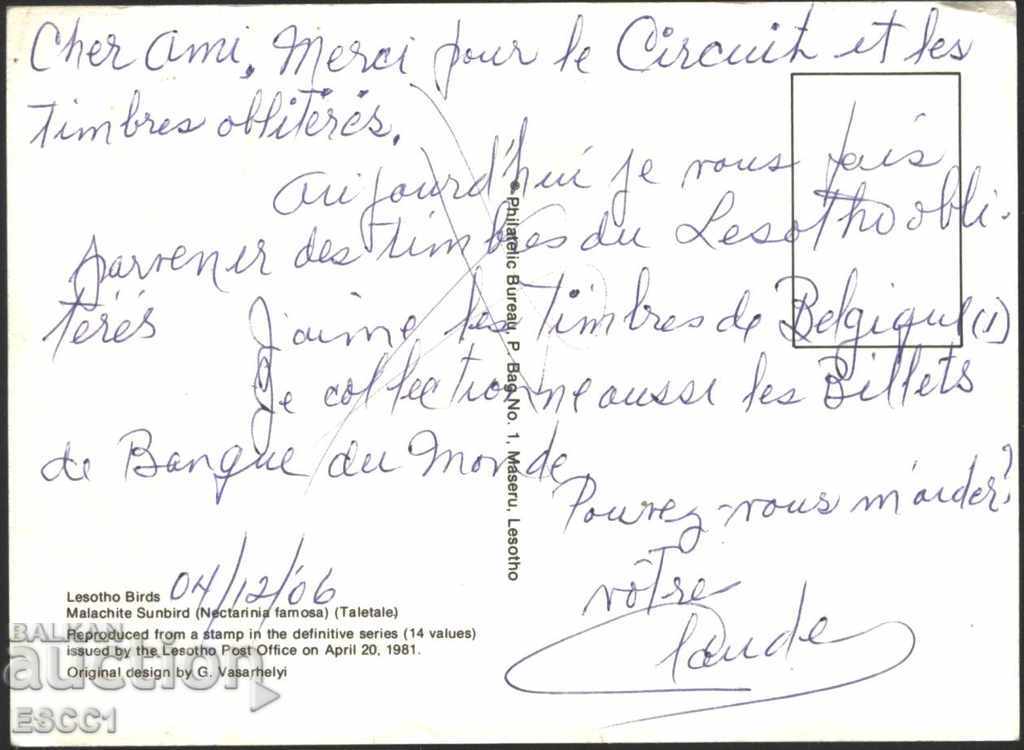 Cher Ami. Merci pour le Circuit et les
timbres oblitérés.
Aujourd'hui je vous fais
parvenir des timbres du Lesotho obli-
térés J'aime les timbres de Belgique (1)
Je collectionne aussi les Billets
de Banque du Monde
Pouvez-vous m'aider?
vôtre
Claude
Philatelic Bureau, P. Bag No. 1, Maseru, Lesotho
04/12/06
Lesotho Birds
Malachite Sunbird (Nectarinia famosa) (Taletale)
Reproduced from a stamp in the definitive series (14 values)
issued by the Lesotho Post Office on April 20, 1981.
Original design by G. Vasarhelyi
BALKAN
auction
ESCC1